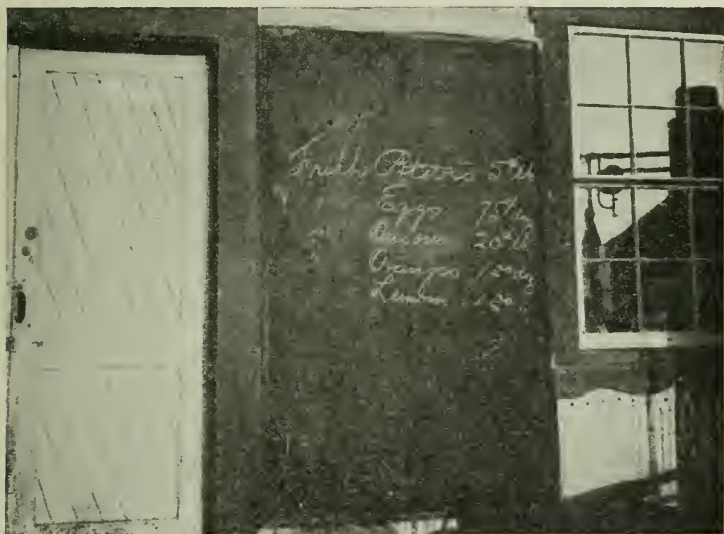 Fresh Potatoes 5¢ lb
" Eggs 75¢
" Onions 20¢ lb
" Oranges
Lemons